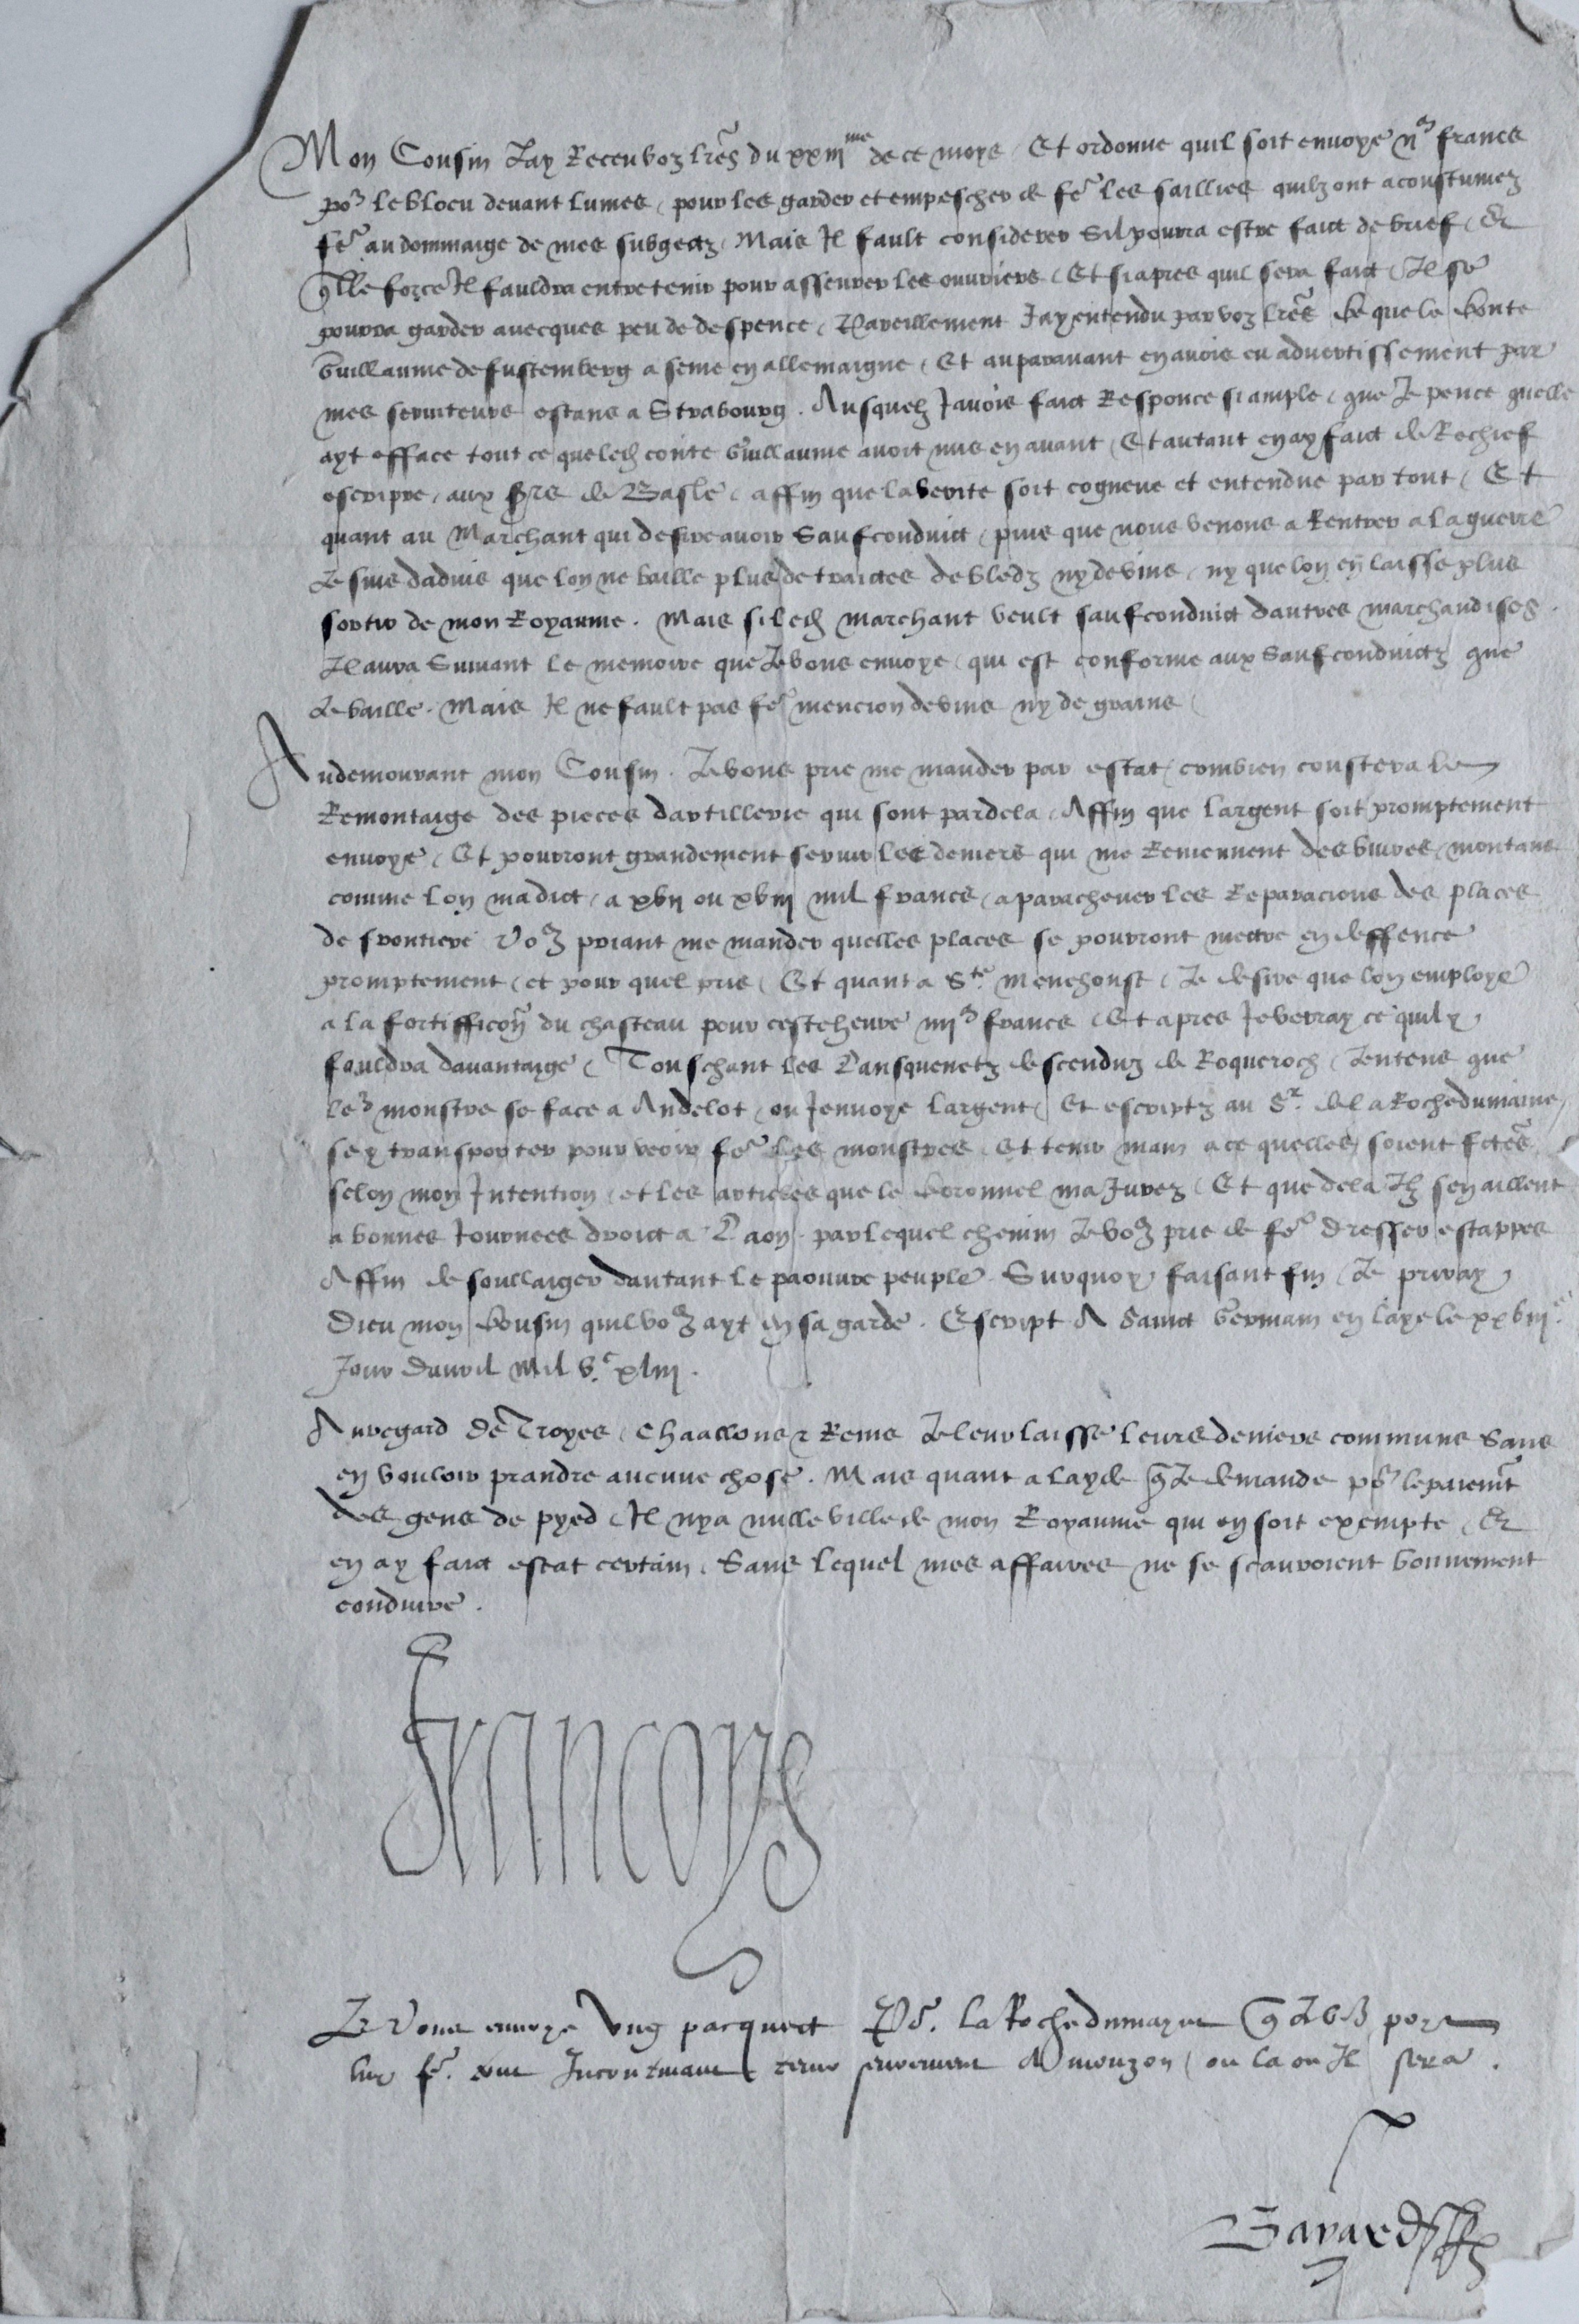 Mon Cousin Jay Receu voz lres du xxiii me de ce moys Et ordonne quil soit envoye iim francs
por le blocu devant lumes pour les garder et empescher de fe les saillies quilz ont acoustumez
fe au dommaige de mes subgectz. Mais Il fault considerer Sil pourra estre faict de brief &
qlle force Il fauldra entretenir pour asseurer les ouvriers Et si apres quil sera faict Il se
pourra garder avecques peu de despence Pareillement Jay entendu par voz lres ce que le Conte
Guillaume de fustemberg a seme en allemaigne Et auparavant en avois eu advertissement par
mes serviteurs estans a Strabourg. Ausquelz Javois faict Responce si ample que Je pence quelle
ayt efface tout ce que led conte Guillaume avoit mis en avant Et autant en ay faict de Rechief
escripre aux srs de Basle affin que la verite soit cogneue et entendue par tout Et
quant au Marchant qui desire avoir Saufconduict puis que nous venons a Rentrer a la guerre
Je suis dadvis que lon ne baille plus de traictes de bledz ny de vins ny que lon en laisse plus
sortir de mon Royaume. Mais si led marchant veult saufconduict dautres marchandises.
Il aura Suivant le memoire que Je vous envoye qui est conforme aux Saufconduictz que
Je baille. Mais Il ne fault pas fe mencion de vins ny de grains
Audemourant mon Cousin. Je vous prie me mander par estat combien coustera le
Remontaige des pieces dartillerie qui sont pardela Affin que largent soit promptement
envoye Et pourront grandement servir les deniers qui me Reviennent des vivres montans
comme lon ma dict a xvii ou xviii mil francs a parachever les Reparacions des places
de frontiere Voz priant me mander quelles places se pourront mectre en deffence
promptement et pour quel pris Et quant a Ste Menehoust Je desire que lon employe
a la fortifficon du chasteau pour cesteheure iiiim francs Et apres Je verray ce quil y
fauldra davantaige Touschant les Lansquenetz descenduz de Roqueroch Jentens que
leur monstre se face a Andelot ou Jenvoye largent Et escriptz au Sr. de la Rochedumaine
sey transporter pour veoir fe les monstres Et tenir main a ce quelles soient fctes
selon mon Intention et les articles que le Coronnel ma Jurez Et que dela Ilz sen aillent
a bonnes Journees droict a Laon par lequel chemin Je voz prie de fe dresser estappes
Affin de soullaiger dautant le paouvre peuple. Surquoy faisant fin Je priray
Dieu mon Cousin quil voz ayt en sa garde. Escript A Sainct Germain en Laye le xxviiie
Jour davril Mil vc xliii.
Auregard de Troyes Chaallons & Reims Je leur laisse leurs deniers communs Sans
en vouloir prandre aucune chose. Mais quant a layde q Je demande por le paiemt
des gens de pyed Il nya nulle ville de mon Royaume qui en soit exempte &
en ay faict estat certain. Sans lequel mes affaires ne se scauroient bonnement
conduire.
Francoys
Je vous envoye ung pacquect Por. la Rochedumayne q Je voz prye
luy fe. tenir Incontinant seurement A mouzon ou la ou Il sera.
Bayard